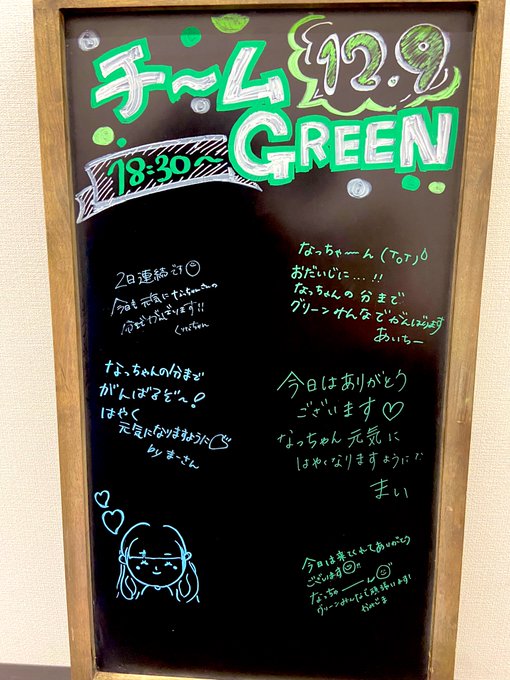 チーム 12.9
GREEN
18:30〜
2日連続です
今日も元気になっちゃんの
分までがんばります!!
なっちゃーん(ToT)
おだいじに...!!
なっちゃんの分まで
グリーンみんなでがんばります
あいちー
なっちゃんの分まで
がんばるぞ〜!
はやく
元気になりますように♡
by まーさん
今日はありがとう
ございます♡
なっちゃん元気に
はやくなりますように
まい
今日は来てくれてありがとう
ございます!!
なっちゃーん
グリーンみんなで頑張ります!